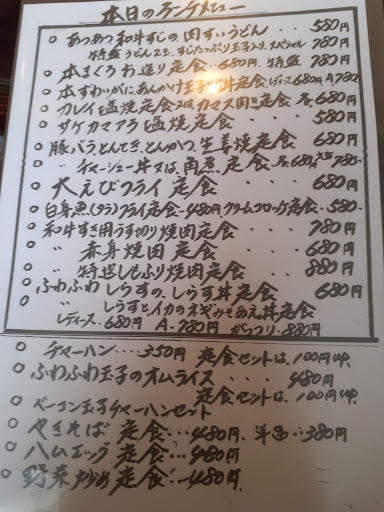 本日のランチメニュー
○あつあつ和牛すじの、肉すいうどん‥ 580円
特盛うどん2玉、すじたっぷり玉子入り、スペシャル 780円
○本まぐろお造り定食‥680円、特盛 780円
○本ずわいがに、あんかけ玉子とじ丼定食 レディース680円 A,780
○カレイ塩焼定食又はカマス開き定食 各680円
○サケカマアラ塩焼定食 ‥ 580円
○豚バラとんてき、とんかつ、生姜焼定食 680円
○〃 チャーシュー丼又は、角煮定食、各680円 780-
○大えびフライ定食 ‥ 680円
○白身魚(タラ)フライ定食-480円、クリームコロッケ定食、580-
○和牛すき用うす切り焼肉定食 ‥ 780円
○〃 赤身焼肉定食 ‥ 680円
○〃 特選しもふり焼肉定食 ‥ 880円
○ふわふわしらすの、しらす丼定食 680円
○〃 しらすとイカのネギみそあえ丼定食
レディース、680円 A-780円 がっつり、880円
○チャーハン‥‥350円 定食セットは、100円UP、
○ふわふわ玉子のオムライス ‥‥ 480円
定食セットは、100円UP、
○ベーコン玉子チャーハンセット
○やきそば定食‥480円、単品‥380円
○ハムエッグ定食‥480円
○野菜炒め定食‥480円、